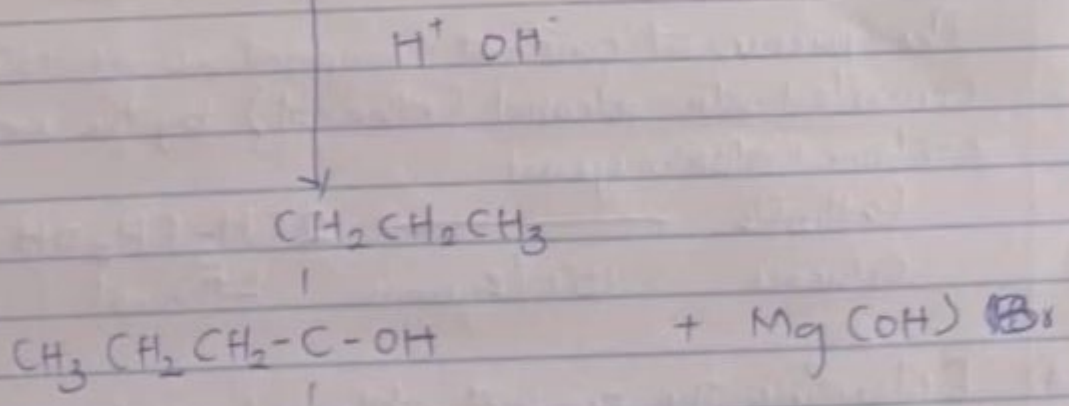 H⁺ OH⁻
CH₂CH₂CH₃
CH₃ CH₂ CH₂-C-OH + Mg (OH) Br